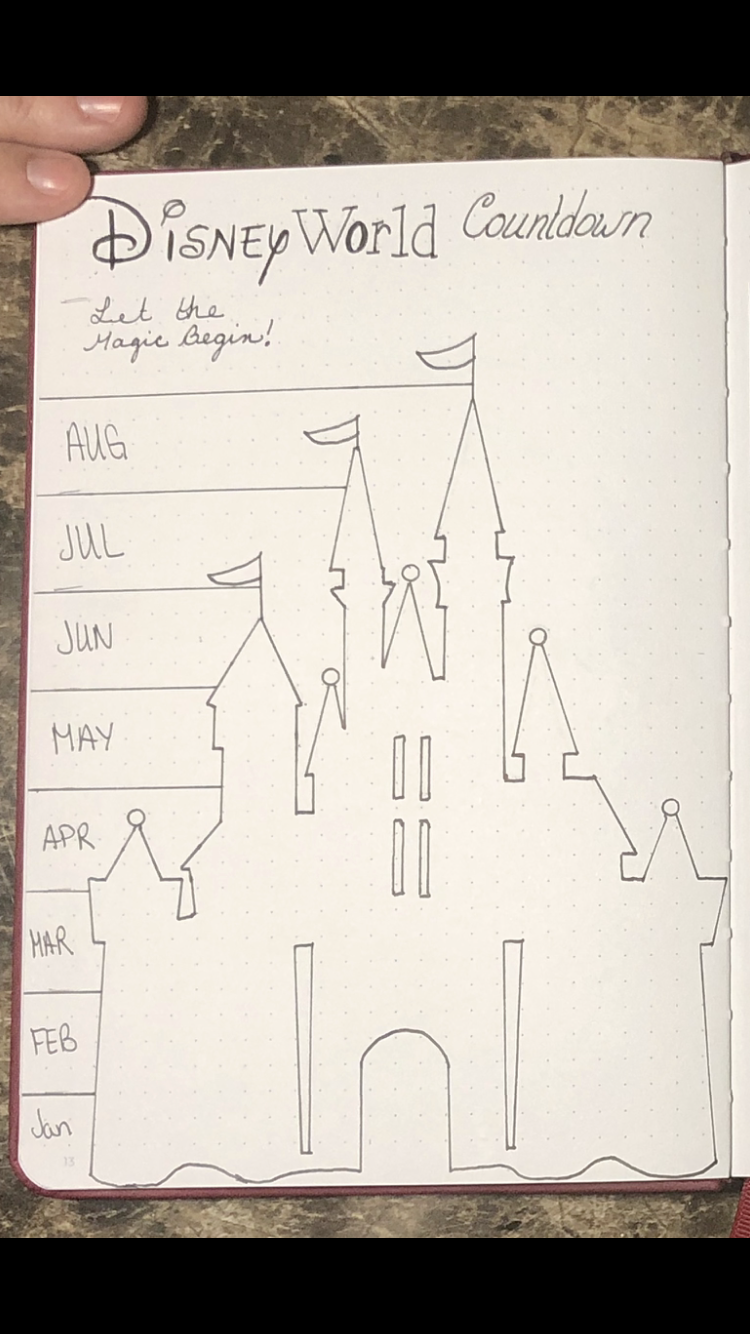 DiSNEY World Countdown
Let the
Magic Begin!
AUG
JUL
JUN
MAY
APR
MAR
FEB
Jan
13